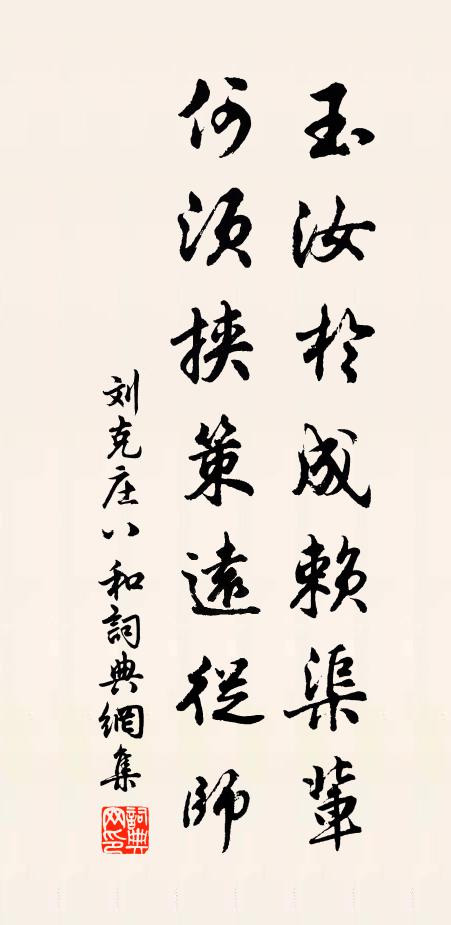 玉汝於成賴渠輩
何須挾策遠從師
刘克庄八和詞典網集
詞典网印